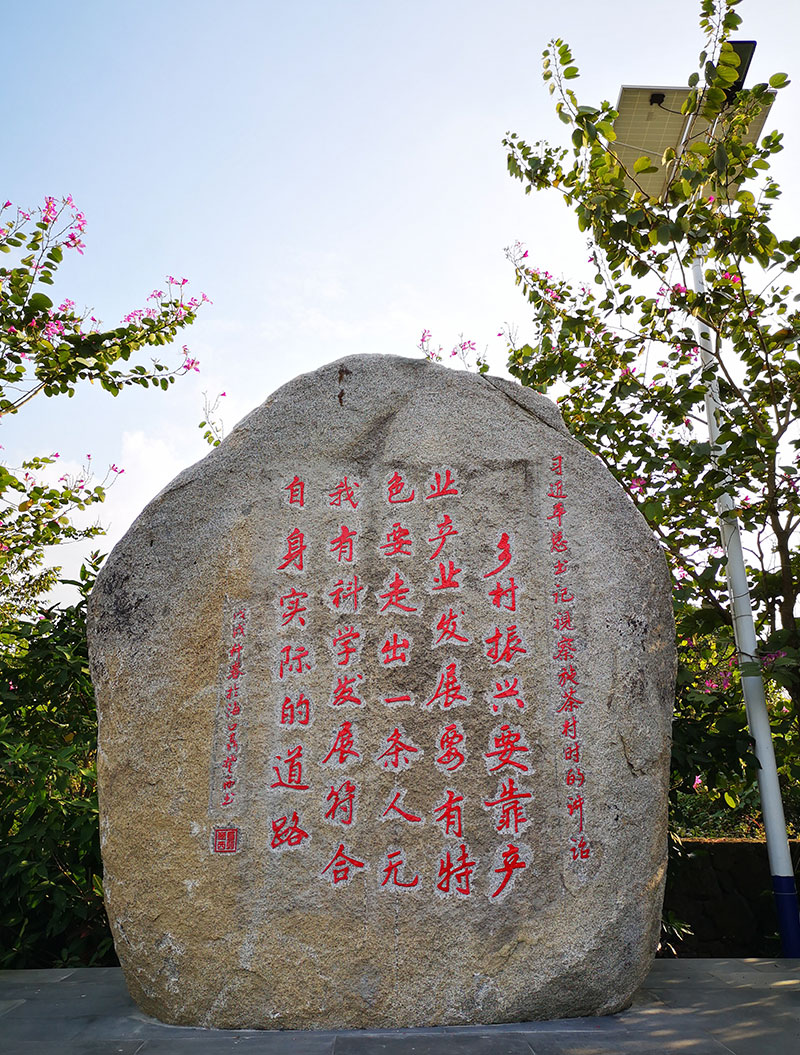 习近平总书记视察施茶村时的讲话
乡村振兴要靠产
业产业发展要有特
色要走出一条人无
我有科学发展符合
自身实际的道路